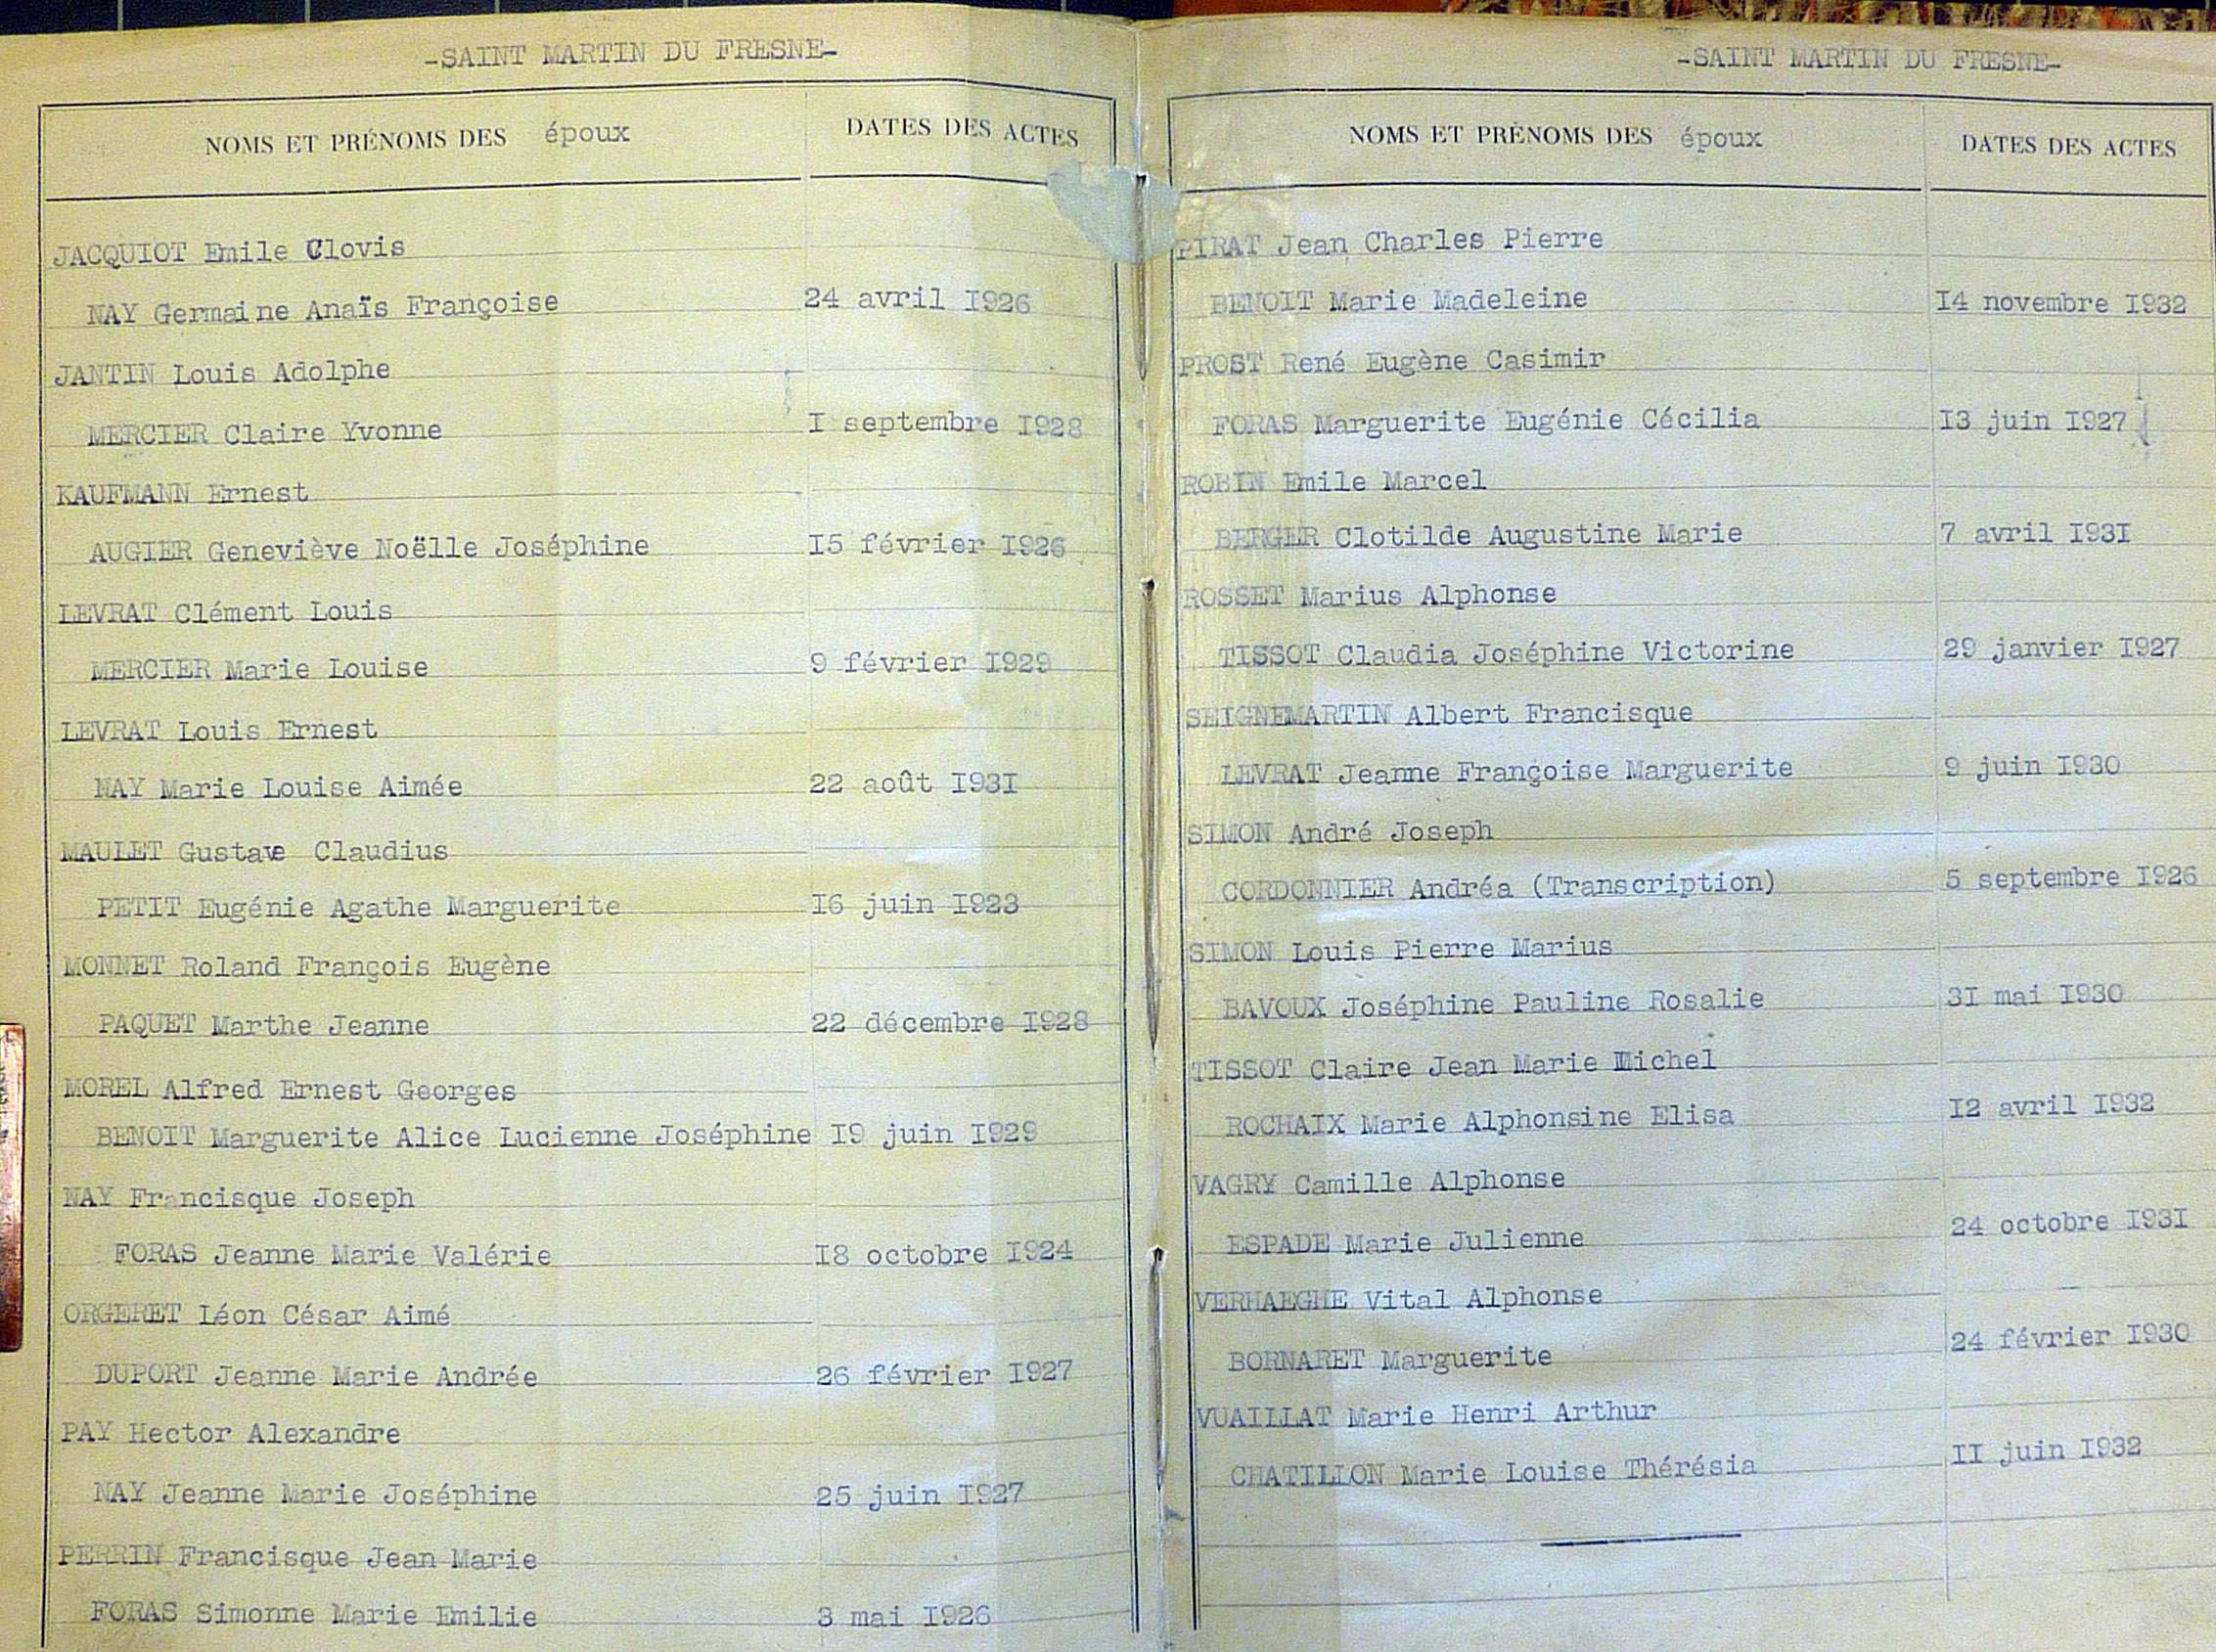 -SAINT MARTIN DU FRESNE-
NOMS ET PRÉNOMS DES époux DATES DES ACTES
JACQUIOT Emile Clovis
NAY Germaine Anaïs Françoise 24 avril I926
JANTIN Louis Adolphe
MERCIER Claire Yvonne I septembre I928
KAUFMANN Ernest
AUGIER Geneviève Noëlle Joséphine I5 février I926
LEVRAT Clément Louis
MERCIER Marie Louise 9 février I929
LEVRAT Louis Ernest
NAY Marie Louise Aimée 22 août I93I
MAULET Gustave Claudius
PETIT Eugénie Agathe Marguerite I6 juin I923
MONNET Roland François Eugène
PAQUET Marthe Jeanne 22 décembre I928
MOREL Alfred Ernest Georges
BENOIT Marguerite Alice Lucienne Joséphine I9 juin I929
NAY Francisque Joseph
FORAS Jeanne Marie Valérie I8 octobre I924
ORGERET Léon César Aimé
DUPORT Jeanne Marie Andrée 26 février I927
PAY Hector Alexandre
NAY Jeanne Marie Joséphine 25 juin I927
PERRIN Francisque Jean Marie
FORAS Simonne Marie Emilie 3 mai I926
-SAINT MARTIN DU FRESNE-
NOMS ET PRÉNOMS DES époux DATES DES ACTES
PIRAT Jean Charles Pierre
BENOIT Marie Madeleine I4 novembre I932
PROST René Eugène Casimir
FORAS Marguerite Eugénie Cécilia I3 juin I927
ROBIN Emile Marcel
BERGER Clotilde Augustine Marie 7 avril I93I
ROSSET Marius Alphonse
TISSOT Claudia Joséphine Victorine 29 janvier I927
SEIGNEMARTIN Albert Francisque
LEVRAT Jeanne Françoise Marguerite 9 juin I930
SIMON André Joseph
CORDONNIER Andréa (Transcription) 5 septembre I926
SIMON Louis Pierre Marius
BAVOUX Joséphine Pauline Rosalie 3I mai I930
TISSOT Claire Jean Marie Michel
ROCHAIX Marie Alphonsine Elisa I2 avril I932
VAGRY Camille Alphonse
ESPADE Marie Julienne 24 octobre I93I
VERHAEGHE Vital Alphonse
BORNARET Marguerite 24 février I930
VUAILLAT Marie Henri Arthur
CHATILLON Marie Louise Thérésia II juin I932